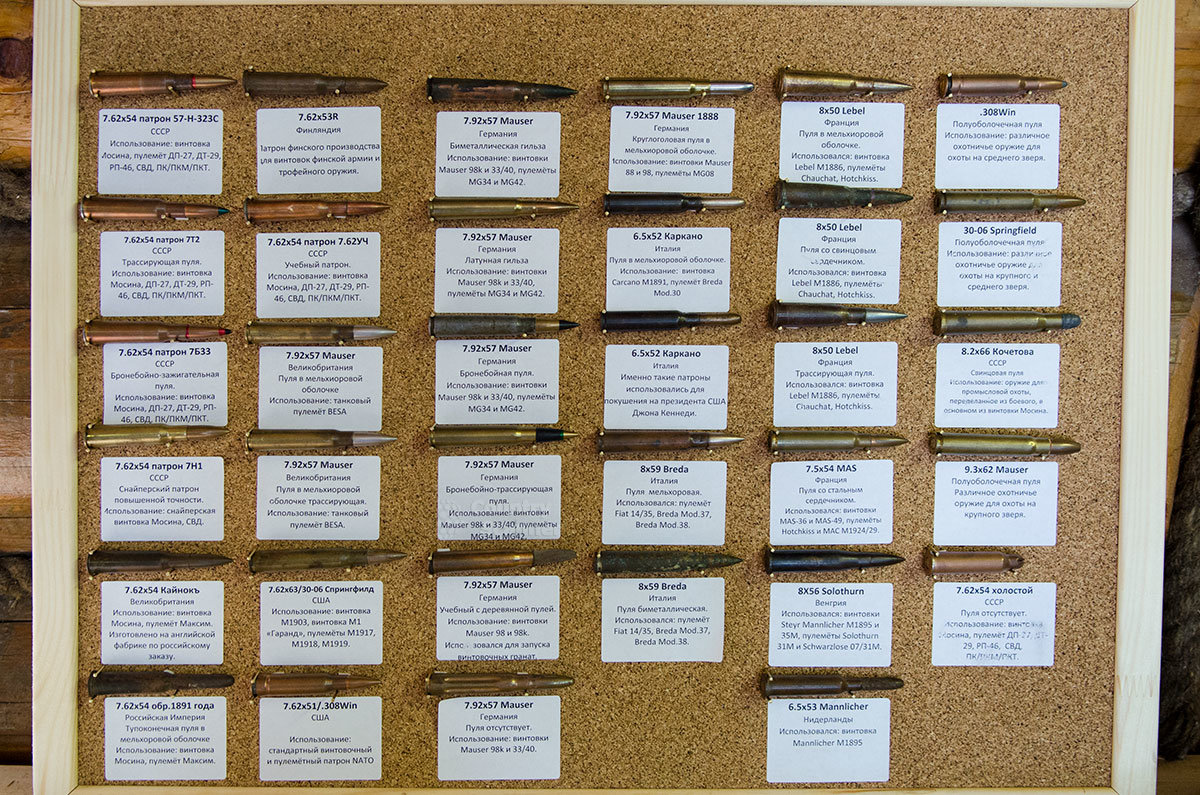 7.62x54 патрон 57-Н-323С
СССР
Использование: винтовка
Мосина, пулемёт ДП-27, ДТ-29,
РП-46, СВД, ПК/ПКМ/ПКТ.
7.62x53R
Финляндия
Патрон финского производства
для винтовок финской армии и
трофейного оружия.
7.92x57 Mauser
Германия
Биметаллическая гильза
Использование: винтовки
Mauser 98k и 33/40, пулемёты
MG34 и MG42.
7.92x57 Mauser 1888
Германия
Круглоголовая пуля в
мельхиоровой оболочке.
Использование: винтовки Mauser
88 и 98, пулемёты MG08
8x50 Lebel
Франция
Пуля в мельхиоровой
оболочке.
Использовался: винтовка
Lebel M1886, пулемёты
Chauchat, Hotchkiss.
.308Win
Полуоболочечная пуля
Использование: различное
охотничье оружие для
охоты на среднего зверя.
7.62x54 патрон 7Т2
СССР
Трассирующая пуля.
Использование: винтовка
Мосина, ДП-27, ДТ-29, РП-
46, СВД, ПК/ПКМ/ПКТ.
7.62x54 патрон 7.62УЧ
СССР
Учебный патрон.
Использование: винтовка
Мосина, ДП-27, ДТ-29, РП-
46, СВД, ПК/ПКМ/ПКТ.
7.92x57 Mauser
Германия
Латунная гильза
Использование: винтовки
Mauser 98k и 33/40,
пулемёты MG34 и MG42.
6.5x52 Каркано
Италия
Пуля в мельхиоровой оболочке.
Использование: винтовка
Carcano M1891, пулемёт Breda
Mod.30
8x50 Lebel
Франция
Пуля со свинцовым
сердечником.
Использовался: винтовка
Lebel M1886, пулемёты
Chauchat, Hotchkiss.
30-06 Springfield
Полуоболочечная пуля
Использование: различное
охотничье оружие для
охоты на крупного и
среднего зверя.
7.62x54 патрон 7БЗ3
СССР
Бронебойно-зажигательная
пуля.
Использование: винтовка
Мосина, ДП-27, ДТ-29, РП-
46, СВД, ПК/ПКМ/ПКТ.
7.92x57 Mauser
Великобритания
Пуля в мельхиоровой
оболочке
Использование: танковый
пулемёт BESA
7.92x57 Mauser
Германия
Бронебойная пуля.
Использование: винтовки
Mauser 98k и 33/40, пулемёты
MG34 и MG42.
6.5x52 Каркано
Италия
Именно такие патроны
использовались для
покушения на президента США
Джона Кеннеди.
8x50 Lebel
Франция
Трассирующая пуля.
Использовался: винтовка
Lebel M1886, пулемёты
Chauchat, Hotchkiss.
8.2x66 Кочетова
СССР
Свинцовая пуля
Использование: оружие для
промысловой охоты,
переделанное из боевого, в
основном из винтовки Мосина.
7.62x54 патрон 7Н1
СССР
Снайперский патрон
повышенной точности.
Использование: снайперская
винтовка Мосина, СВД.
7.92x57 Mauser
Великобритания
Пуля в мельхиоровой
оболочке трассирующая.
Использование: танковый
пулемёт BESA.
7.92x57 Mauser
Германия
Бронебойно-трассирующая
пуля.
Использование: винтовки
Mauser 98k и 33/40, пулемёты
MG34 и MG42.
8x59 Breda
Италия
Пуля мельхоровая.
Использовался: пулемёт
Fiat 14/35, Breda Mod.37,
Breda Mod.38.
7.5x54 MAS
Франция
Пуля со стальным
сердечником.
Использовался: винтовки
MAS-36 и MAS-49, пулемёты
Hotchkiss и MAC M1924/29.
9.3x62 Mauser
Полуоболочечная пуля
Различное охотничье
оружие для охоты на
крупного зверя.
7.62x54 Кайнокъ
Великобритания
Использование: винтовка
Мосина, пулемёт Максим.
Изготовлено на английской
фабрике по российскому
заказу.
7.62x63/30-06 Спрингфилд
США
Использование: винтовка
М1903, винтовка М1
«Гаранд», пулемёты М1917,
М1918, М1919.
7.92x57 Mauser
Германия
Учебный с деревянной пулей.
Использование: винтовки
Mauser 98 и 98k.
Использовался для запуска
винтовочных гранат.
8x59 Breda
Италия
Пуля биметаллическая.
Использовался: пулемёт
Fiat 14/35, Breda Mod.37,
Breda Mod.38.
8X56 Solothurn
Венгрия
Использовался: винтовки
Steyr Mannlicher M1895 и
35M, пулемёты Solothurn
31M и Schwarzlose 07/31M.
7.62x54 холостой
СССР
Пуля отсутствует.
Использование: винтовка
Мосина, пулемёт ДП-27, ДТ-
29, РП-46, СВД,
ПК/ПКМ/ПКТ.
7.62x54 обр.1891 года
Российская Империя
Тупоконечная пуля в
мельхиоровой оболочке
Использование: винтовка
Мосина, пулемёт Максим.
7.62x51/.308Win
США
Использование:
стандартный винтовочный
и пулемётный патрон NATO
7.92x57 Mauser
Германия
Пуля отсутствует.
Использование: винтовки
Mauser 98k и 33/40.
6.5x53 Mannlicher
Нидерланды
Использовался: винтовка
Mannlicher M1895